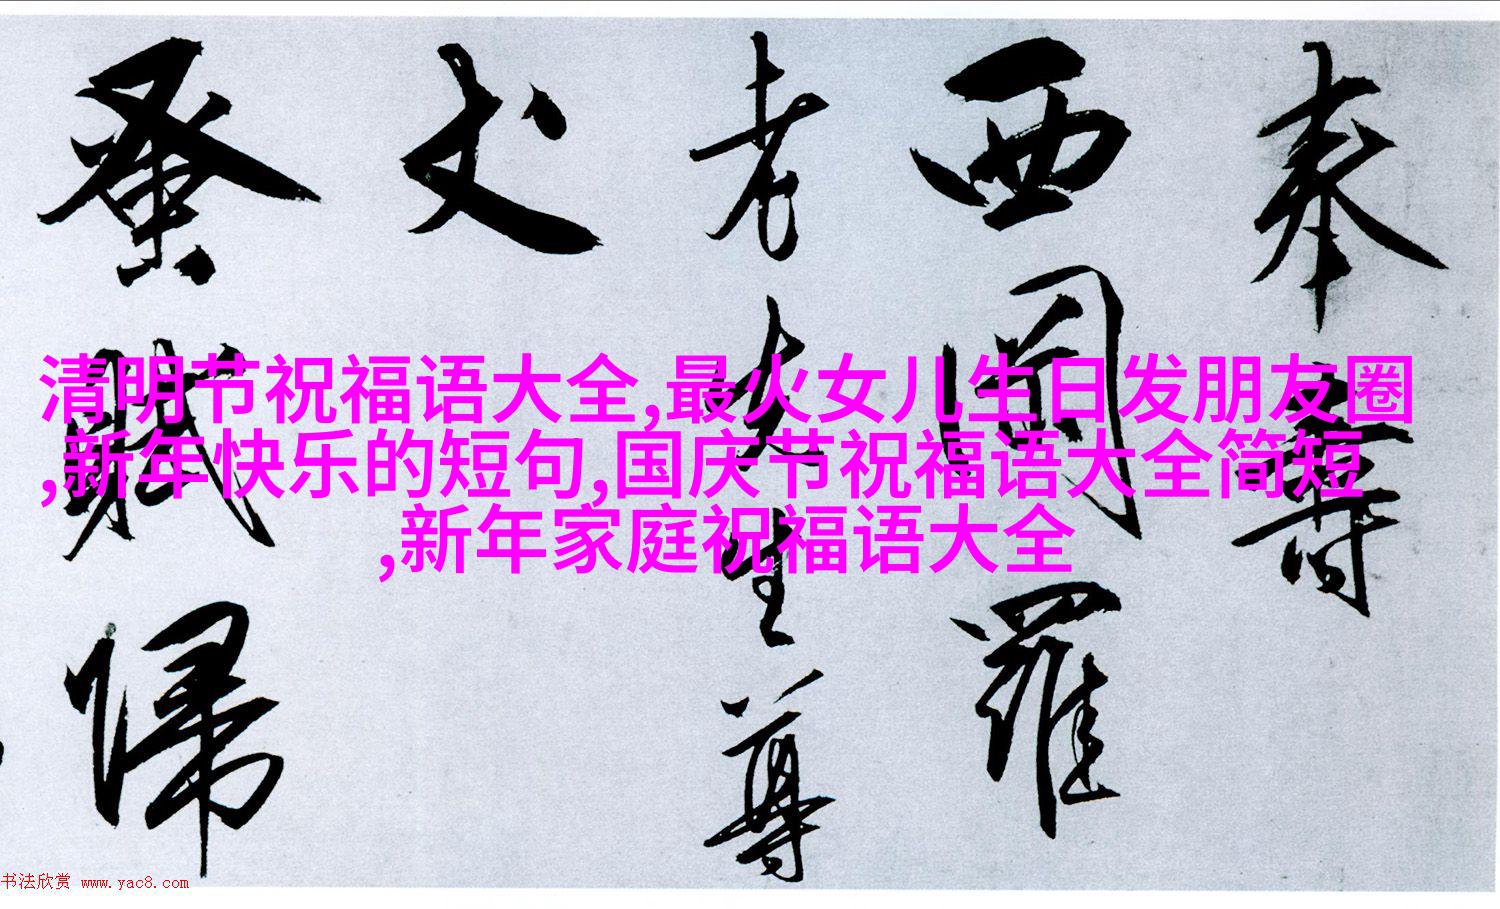 奉壽
西羅
老先生尊
丈
蚤賦歸
清明节祝福语大全,最火女儿生日发朋友圈
,新年快乐的短句,国庆节祝福语大全简短
,新年家庭祝福语大全
书法欣赏 www.yac8.com